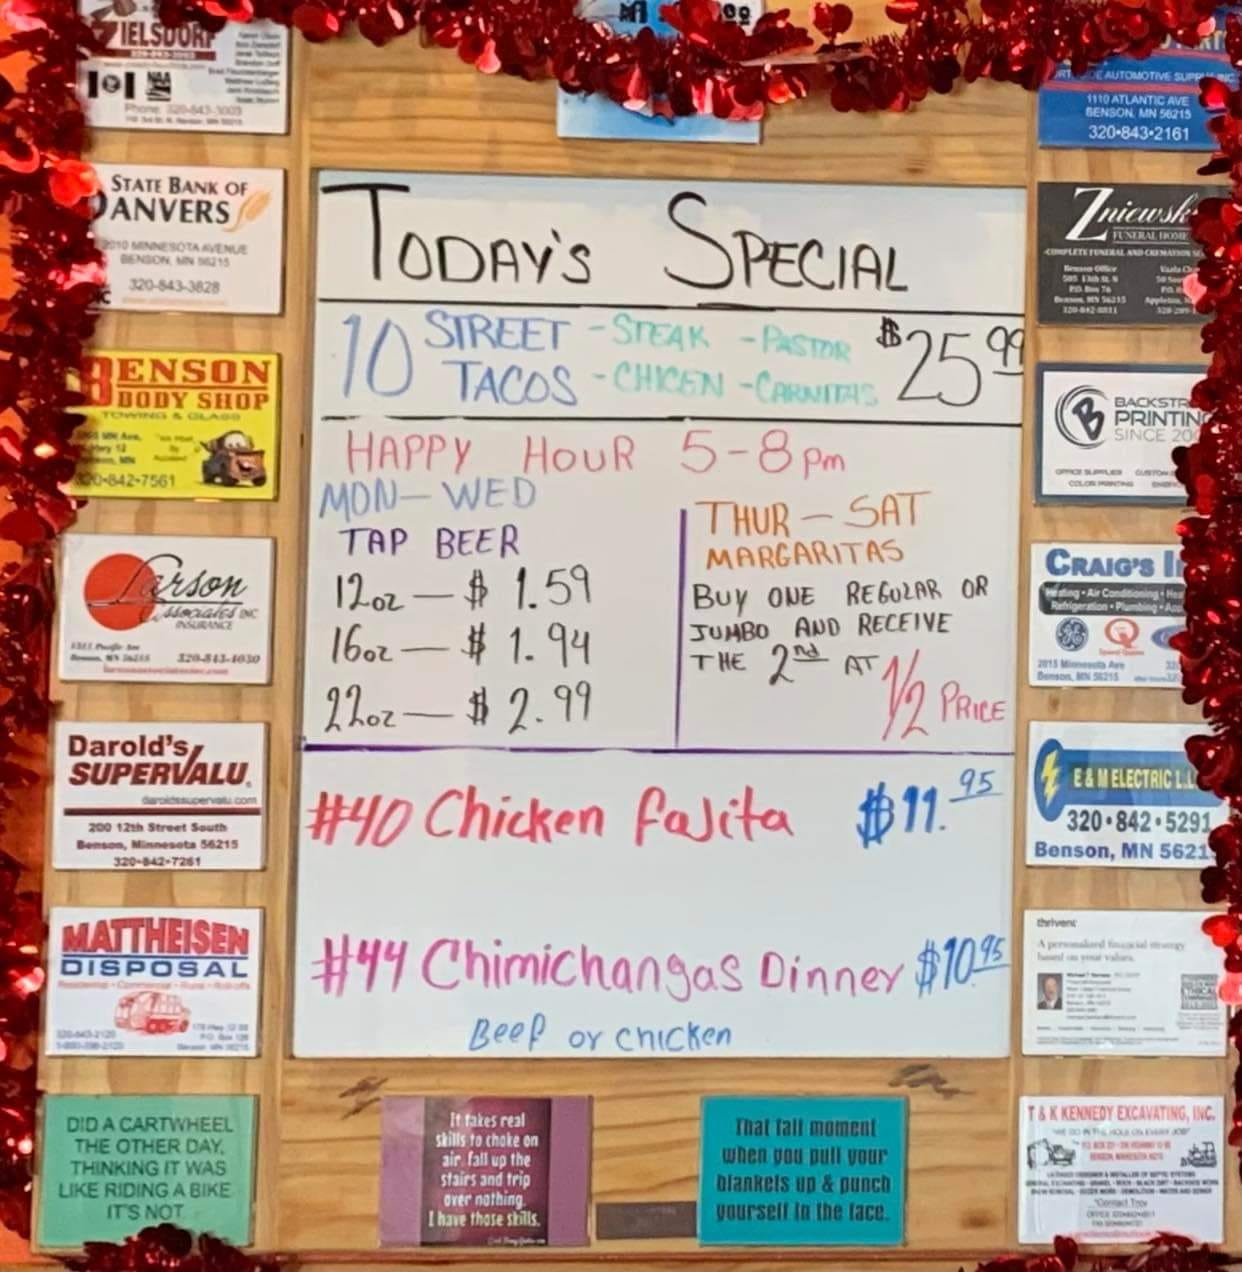 TODAY'S SPECIAL
10 STREET TACOS
- STEAK - PASTOR
- CHICEN - CARNITAS
$25.99
HAPPY HOUR 5-8pm
MON-WED
TAP BEER
12oz — $ 1.59
16oz — $ 1.94
22oz — $ 2.99
THUR - SAT
MARGARITAS
BUY ONE REGULAR OR
JUMBO AND RECEIVE
THE 2nd AT 1/2 PRICE
#40 Chicken faJita $11.95
#44 Chimichangas Dinner $10.95
Beef or chicken
IELSDORF
320-843-3003
Phone: 320-843-3003
STATE BANK OF
DANVERS
2010 MINNESOTA AVENUE
BENSON, MN 56215
320-843-3828
BENSON
BODY SHOP
TOWING & GLASS
320-842-7561
Larson
Associates INC
INSURANCE
Benson, MN 56215 320-843-4030
Darold's
SUPERVALU.
daroldssupervalu.com
200 12th Street South
Benson, Minnesota 56215
320-842-7261
MATTHEISEN
DISPOSAL
Residential - Commercial - Rural - Roll-offs
DID A CARTWHEEL
THE OTHER DAY,
THINKING IT WAS
LIKE RIDING A BIKE
IT'S NOT.
It takes real
skills to choke on
air, fall up the
stairs and trip
over nothing.
I have those skills.
That fail moment
when you pull your
blankets up & punch
yourself in the face.
AUTOMOTIVE SUPPLY INC
1110 ATLANTIC AVE
BENSON, MN 56215
320•843•2161
Zniewsk
FUNERAL HOME
COMPLETE FUNERAL AND CREMATION SE
Benson Office
BACKSTR
PRINTING
SINCE 200
OFFICE SUPPLIES CUSTOM
COLOR PRINTING
CRAIG'S I
Heating • Air Conditioning • Hea
Refrigeration • Plumbing • App
2015 Minnesota Ave
Benson, MN 56215
E & M ELECTRIC L.L.
320•842•5291
Benson, MN 5621
thrivent
A personalized financial strategy
based on your values.
T & K KENNEDY EXCAVATING, INC.
"WE GO IN THE HOLE ON EVERY JOB"
BENSON, MINNESOTA 56215